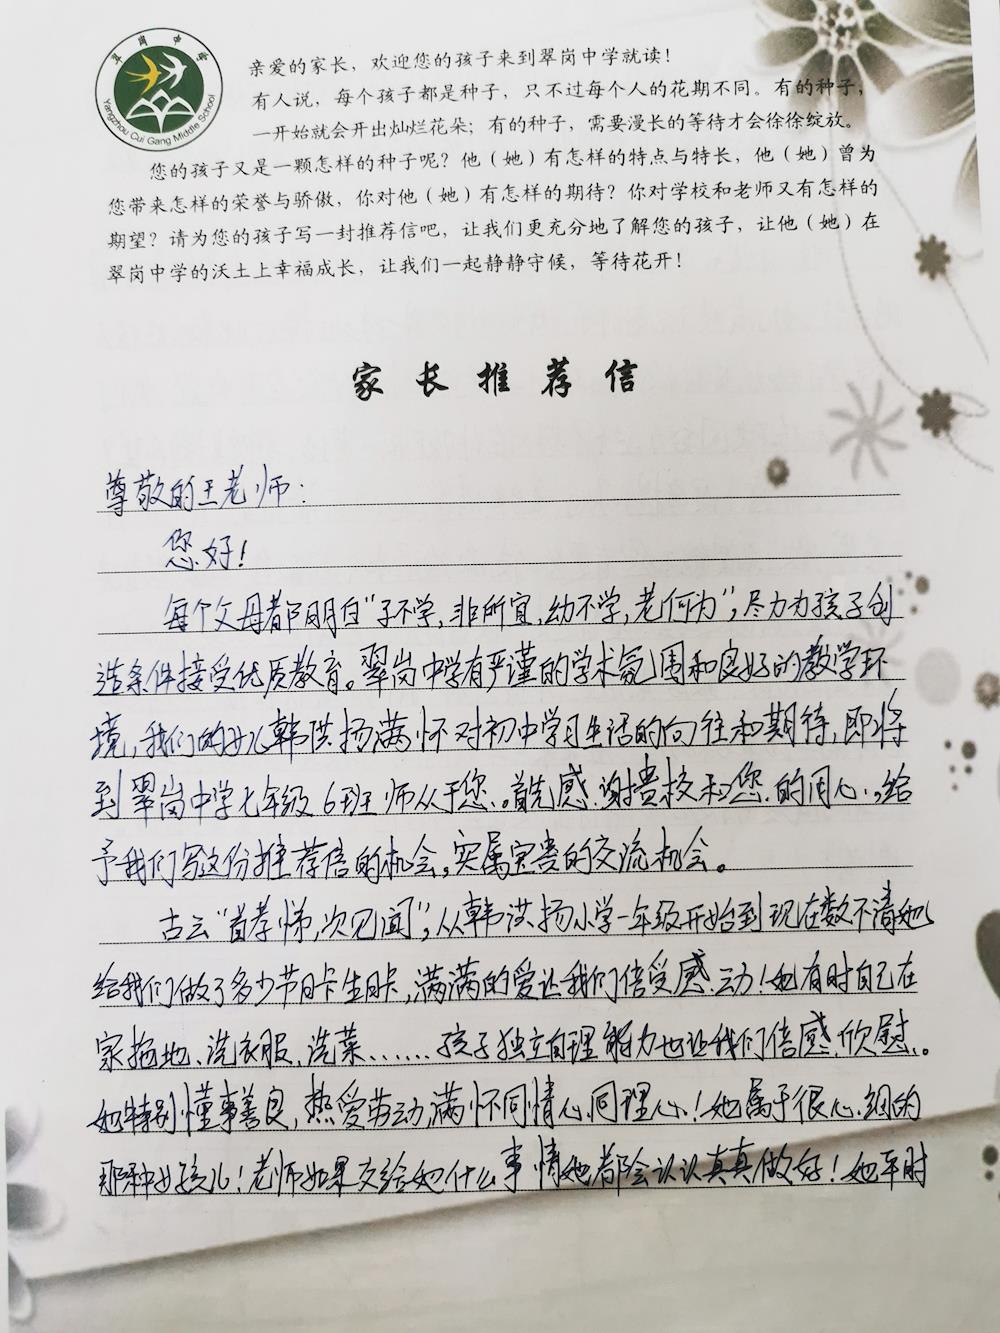 翠岗中学
Yangzhou Cui Gang Middle School
亲爱的家长，欢迎您的孩子来到翠岗中学就读！
有人说，每个孩子都是种子，只不过每个人的花期不同。有的种子，
一开始就会开出灿烂花朵；有的种子，需要漫长的等待才会徐徐绽放。
您的孩子又是一颗怎样的种子呢？他（她）有怎样的特点与特长，他（她）曾为
您带来怎样的荣誉与骄傲，你对他（她）有怎样的期待？你对学校和老师又有怎样的
期望？请为您的孩子写一封推荐信吧，让我们更充分地了解您的孩子，让他（她）在
翠岗中学的沃土上幸福成长，让我们一起静静守候，等待花开！
家长推荐信
尊敬的王老师：
您好！
每个父母都明白“子不学，非所宜，幼不学，老何为”，尽力为孩子创
造条件接受优质教育。翠岗中学有严谨的学术氛围和良好的教学环
境，我们的女儿韩洪扬满怀对初中学习生活的向往和期待，即将
到翠岗中学七年级6班师从于您。首先感谢贵校和您的用心，给
予我们写这份推荐信的机会，实属宝贵的交流机会。
古云“首孝悌，次见闻”，从韩洪扬小学一年级开始到现在数不清她
给我们做了多少节日卡生日卡，满满的爱让我们倍受感动！她有时自己在
家拖地、洗衣服、洗菜……孩子独立自理能力也让我们倍感欣慰。
她特别懂事善良，热爱劳动，满怀同情心同理心！她属于很心细的
那种女孩儿！老师如果交给她什么事情她都会认认真真做好！她平时